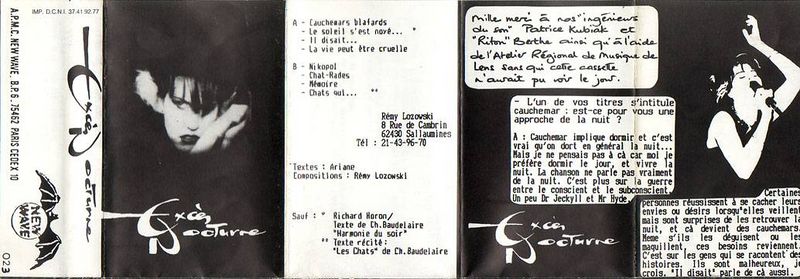 IMP. D.C.N.I. 37.41.92.77
A.P.M.C. NEW WAVE B.P.6. 75462 PARIS CEDEX 10
Excès Nocturne
NEW
WAVE
023
Excès
Nocturne
A - Cauchemars blafards
- Le soleil s'est noyé... *
- Il disait...
- La vie peut être cruelle
B - Nikopol
- Chat-Rades
- Mémoire
- Chats qui... **
Rémy Lozowski
8 Rue de Cambrin
62430 Sallaumines
Tél : 21-43-96-70
Textes : Ariane
Compositions : Rémy Lozowski
Sauf : * Richard Horon/
Texte de Ch.Baudelaire
"Harmonie du soir"
** Texte récité:
"Les Chats" de Ch.Baudelaire
Mille merci à nos "ingénieurs
du son" Patrice Kubiak et
"Riton" Berthe ainsi qu'à l'aide
de l'Atelier Régional de Musique de
Lens sans qui cette cassette
n'aurait pu voir le jour.
- L'un de vos titres s'intitule
cauchemar : est-ce pour vous une
approche de la nuit ?
A : Cauchemar implique dormir et c'est
vrai qu'on dort en général la nuit...
Mais je ne pensais pas à çà car moi je
préfère dormir le jour, et vivre la
nuit. La chanson ne parle pas vraiment
de la nuit. C'est plus sur la guerre
entre le conscient et le subconscient.
Un peu Dr Jeckyll et Mr Hyde.
Certaines
personnes réussissent à se cacher leurs
envies ou désirs lorsqu'elles veillent
mais sont surprises de les retrouver la
nuit, et çà devient des cauchemars.
Meme s'ils les déguisent ou les
maquillent, ces besoins reviennent.
C'est sur les gens qui se racontent des
histoires. Ils sont malheureux, je
crois. "Il disait" parle de çà aussi.
Excès
Nocturne